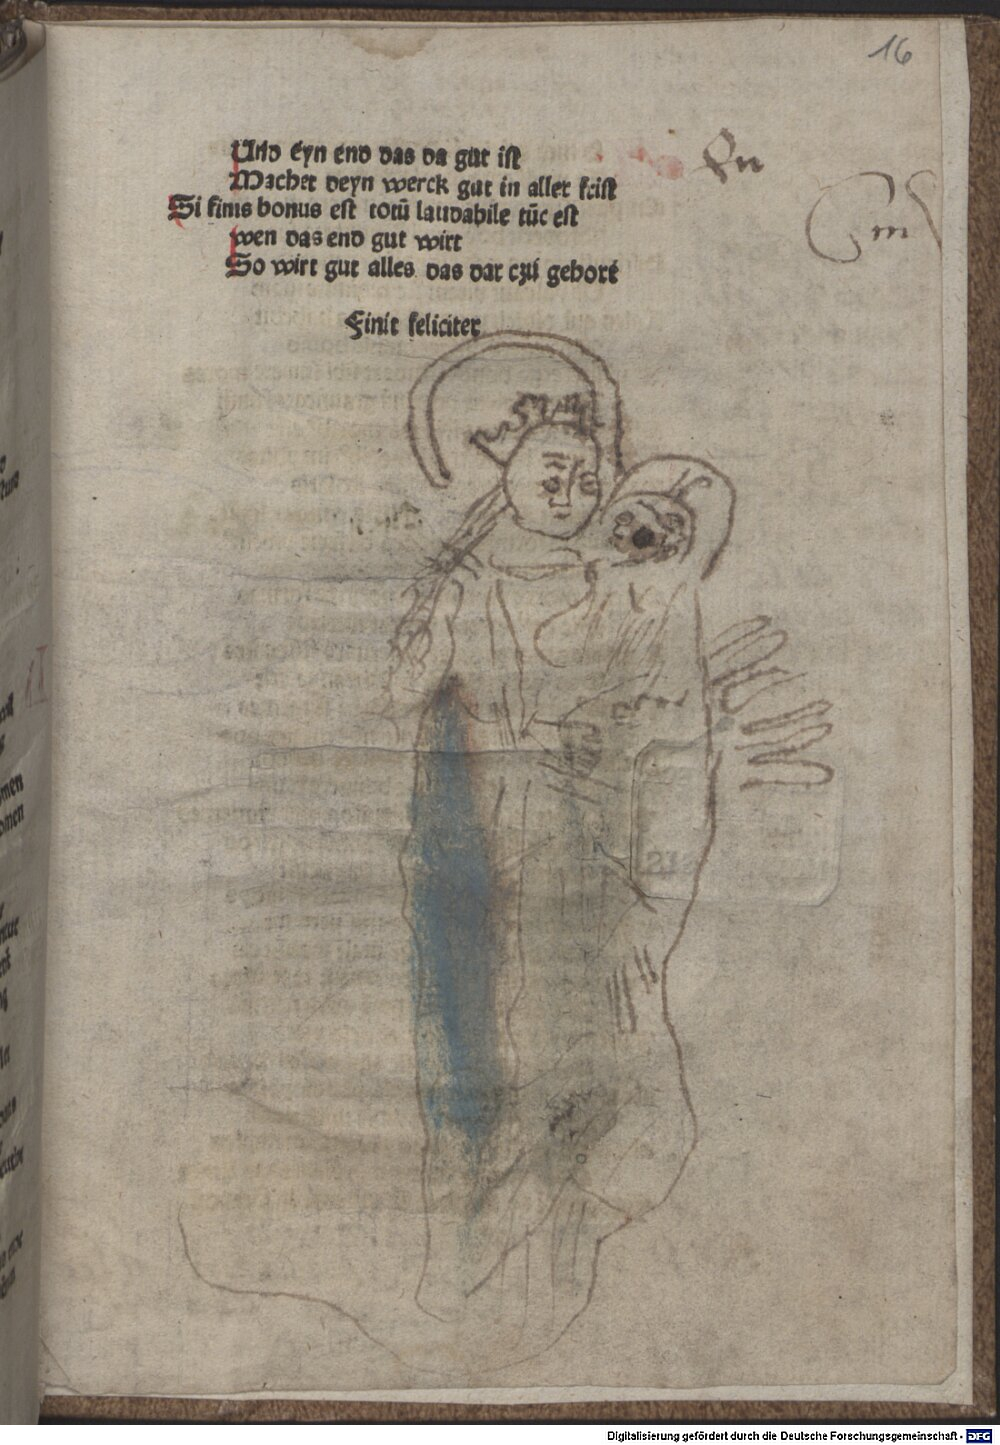 16
Und eyn end das da gut ist
Machet deyn werck gut in aller frist
Si finis bonus est totū laudabile tūc est
wen das end gut wirt
So wirt gut alles das dar czů gehort
Finit feliciter
Digitalisierung gefördert durch die Deutsche Forschungsgemeinschaft - DFG